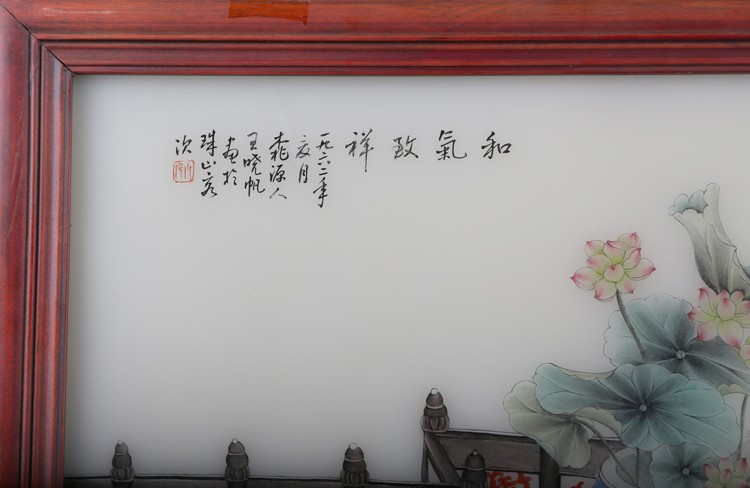 和氣致祥
一九六二年
夏月
桃源人
王曉帆
畫於
珠山客
次